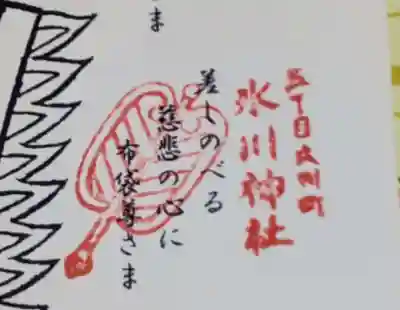 五丁目大川町
氷川神社
差しのべる
慈悲の心に
布袋尊さま
ま